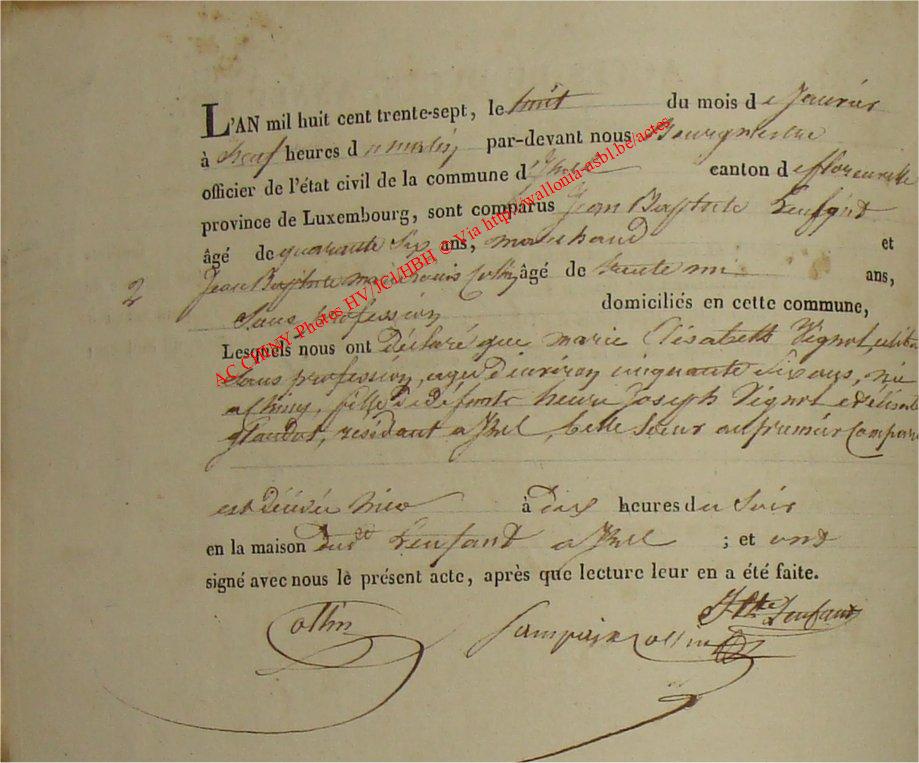 L'AN mil huit cent trente-sept, le huit du mois de Janvier
à neuf heures du matin par-devant nous Bourgmestre
officier de l'état civil de la commune d'Izel canton de florenville
province de Luxembourg, sont comparus Jean Baptiste Lenfant
âgé de quarante six ans, marchand et
2 Jean Baptiste Collin âgé de trente ans,
Sans profession domiciliés en cette commune,
Lesquels nous ont déclaré que marie Elisabeth Vignot, celiba
Sans profession, agée d'environ cinquante six ans, née
a Chiny, fille de défunts henri Joseph Vignot et d'élisab
résidant a Izel, belle Sœur au premier Compara
est décédée hier à dix heures du Soir
en la maison dudt Lenfant a Izel ; et ont
signé avec nous le présent acte, après que lecture leur en a été faite.
Collin
JBte Lenfant
Collin
AC CHINY Photos HV/JCL/HBH, © Via http://wallonia-asbl.be/actes